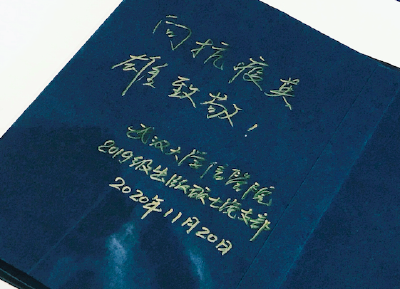 向抗疫英
雄致敬!
武汉大学信管院
2019级出版硕士党支部
2020年11月20日